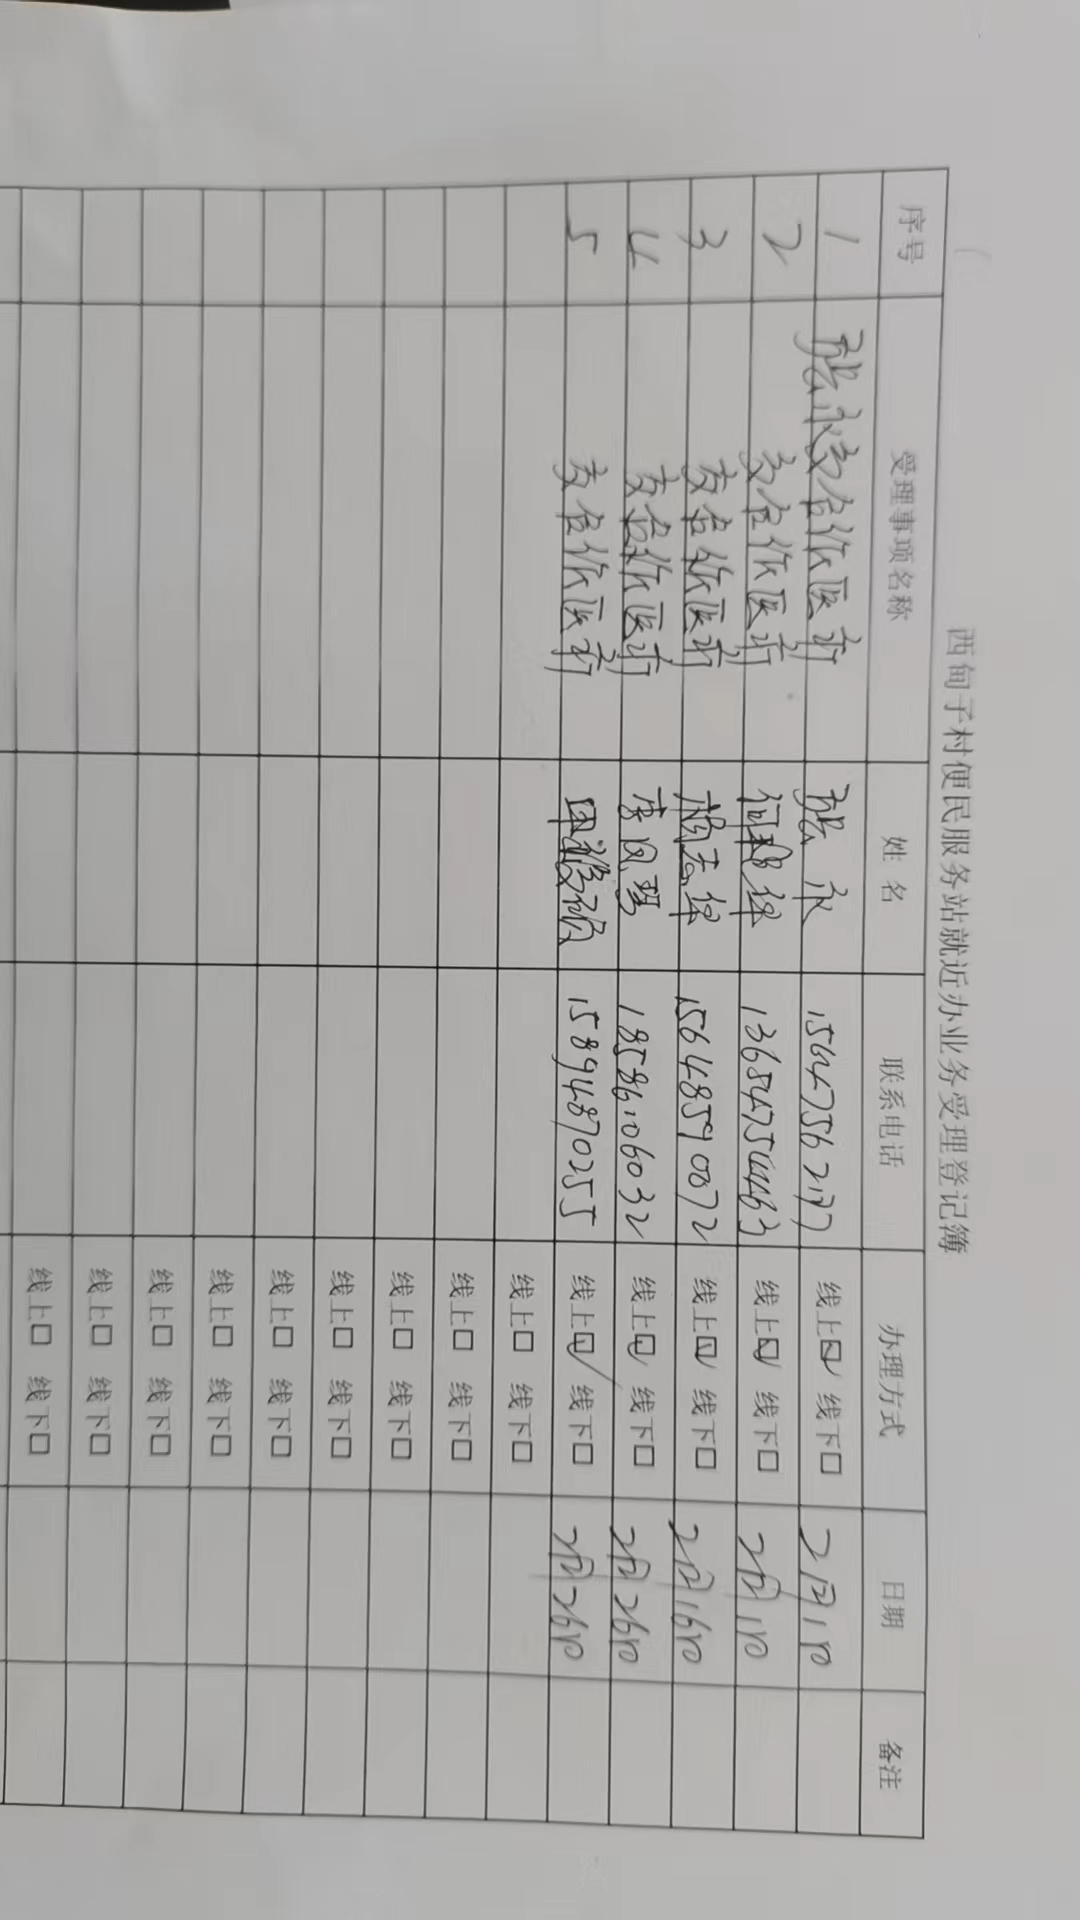 西甸子村便民服务站就近办业务受理登记簿
序号 受理事项名称 姓名 联系电话 办理方式 日期 备注
1 张永交合作医疗 张永 线上☑ 线下□ 2月1日
2 交合作医疗 13684754463 线上☑ 线下□ 2月1日
3 交合作医疗 杨志华 15648590072 线上☑ 线下□ 2月16日
4 交合作医疗 李凤琴 18586106032 线上☑ 线下□ 2月26日
5 交合作医疗 15894870255 线上☑ 线下□ 2月26日
线上□ 线下□
线上□ 线下□
线上□ 线下□
线上□ 线下□
线上□ 线下□
线上□ 线下□
线上□ 线下□
线上□ 线下□
线上□ 线下□